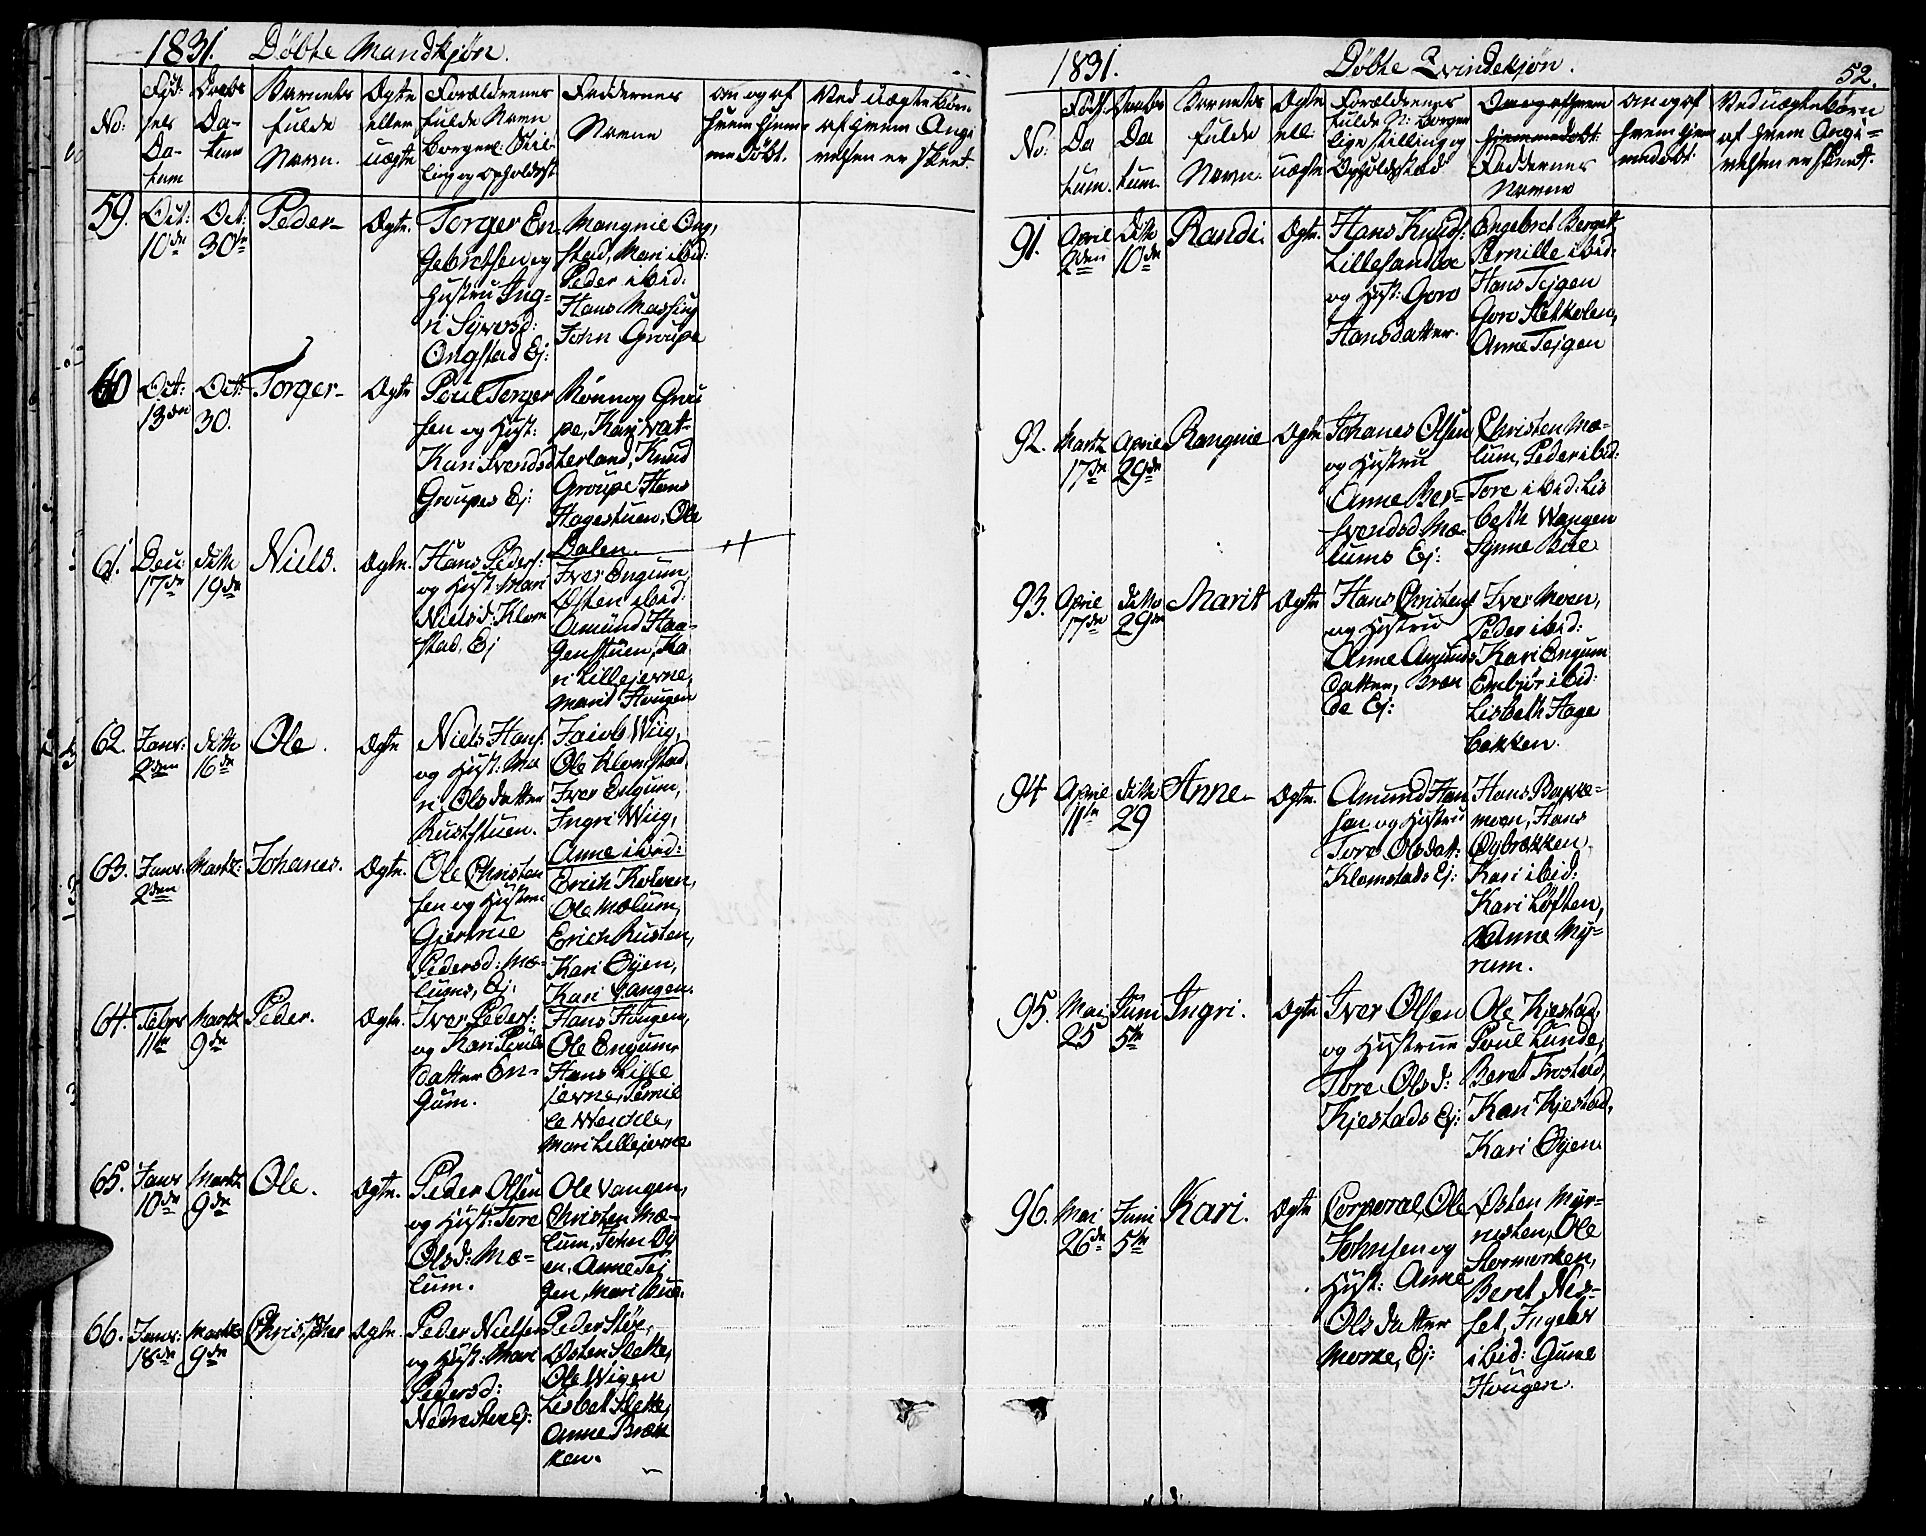 1831. Døbte Mandkjøn.
No:
Fød-
sels
Da-
tum
Daabs
Da-
tum
Barnets
fulde
Navn.
Ægte
eller
uægte
Forældrenes
fulde Navn
borgerl: Stil-
ling og Opholdsst
Faddernes
Navne
om og af
hvem hjem-
medøbt.
Ved uægte børn
af hvem Angi
velsen er skeet.
59. Oct: 10de Oct: 30te Peder- Ægte.
Torger En
gebretsen og
Hustru Ing-
ri Syversd:
Ongstad Ej:
Mangnie Ong,
stad, Mari ibid:
Peder ibid:
Hans Massing
John Groupe
60 Oct: 13de Oct: 30. Torger- Ægte
Poul Torger
sen og Hust:
Kari Svendsd
Groupes Ej:
Rønnog Grou
pe, Kari vat-
terland, Knud
Groupe Hans
Hagestuen, Ole
Dalen.
61. Dec: 17de ditto 19de Niels. Ægte.
Hans Peders:
og Hust: Mari
Nielsd: Klom
stad. Ej
Iver Engum,
Østen ibid:
Amund Haa-
genstuen, Ka
ri Lillejerne,
Marit Hougen
62. Janr: 2den ditto 16de Ole. Ægte
Niels Hans:
og Hust: Ma
ri Olsdatter
Ruststuen.
Jacob Wiig,
Ole Klomstad
Iver Engum,
Ingri Wiig,
Anne ibid:
63. Janr: 2den Martz: Johanes. Ægte.
Ole Christen
sen og Hustru
Gjertrue
Pedersd: Mæ-
lums, Ej:
Erich Kolven,
Ole Mælum,
Erich Rusten,
Kari Øyen,
Kari Vangen.
64. Febr: 11te Martz 9de Peder. Ægte.
Iver Peders:
og Kari Pouls
datter En-
gum.
Hans Hougen,
Ole Engum
Hans Lille
jerne, Pernil
le Wedde,
Mari Lillejerne
65. Janr 10de Martz 9de Ole. Ægte.
Peder Olsen
og Hust: Tore
Olsd: Mæ-
lum.
Ole Vangen,
Christen Mæ-
lum, John Øy
en, Anne Tej
gen, Mari Bue.
66. Janr: 18de Martz 9de Christopher Ægte.
Peder Nielsen
og Hust: Mari
Pedersd:
Nedre Støe Ej:
Peder Støe,
Østen Slette,
Ole Wigen
Lisbet Slette,
Anne Bræk
ken.
1831. Døbte Qvindekjøn. 52.
No:
Føds:
Da
tum.
Daabs
Da
tum.
Barnets
fulde
Navn.
Ægte
ell:
uægte
Forældrenes
fulde N: borger
lige stilling og
Opholdssted
Om og af hvem
hjemmedøbt:
Faddernes
Navne
om og af
hvem hjem
medøbt:
Ved uægte børn
af hvem Angi-
velsen er skeet.
91. April 2den ditto 10de Randi. Ægte.
Hans Knuds:
Lillesandoe
og Hust: Goro
Hansdatter.
Engebret Berget,
Pernille ibid:
Hans Tejgen
Goro Sletkolen,
Anne Tejgen
92. Martz 17de April 29de Rangnie Ægte
Johanes Olsen
og Hustru
Anne Ber-
svendsd Mæ-
lums Ej:
Christen Mæ-
lum, Peder ibid:
Tore ibid: Lis
beth Wangen
Synne Bue
93. April 17de ditto 29de Marit Ægte
Hans Christens
og Hustru
Anne Amunds
datter, Bræn
de Ej:
Iver Moen,
Peder ibid:
Kari Engum
Embjør ibid:
Lisbeth Hage
bakken.
94 April 11te ditto 29 Anne- Ægte.
Amund Han
sen og Hustru
Tore Olsdat:
Klomstads Ej:
Hans Bakke-
moen, Hans
Øybrækken,
Kari ibid:
Kari Løften,
Anne Myr-
rum.
95. Mai 25 Juni 5te Ingri. Ægte
Iver Olsen
og Hustrue
Tore Olsd:
Kjestads Ej:
Ole Kjestad,
Poul Lunde,
Beret Frostad,
Kari Kjestad,
Kari Øyen.
96. Mai 26de Juni 5te Kari. Ægte
Corporal, Ole
Johnsen og
Hust: Anne
Olsdatter
Morke, Ej:
Østen Myr-
nesten, Ole
Stormorken,
Beret Nes-
set, Ingebor
ibid: Gunne
Hougen.